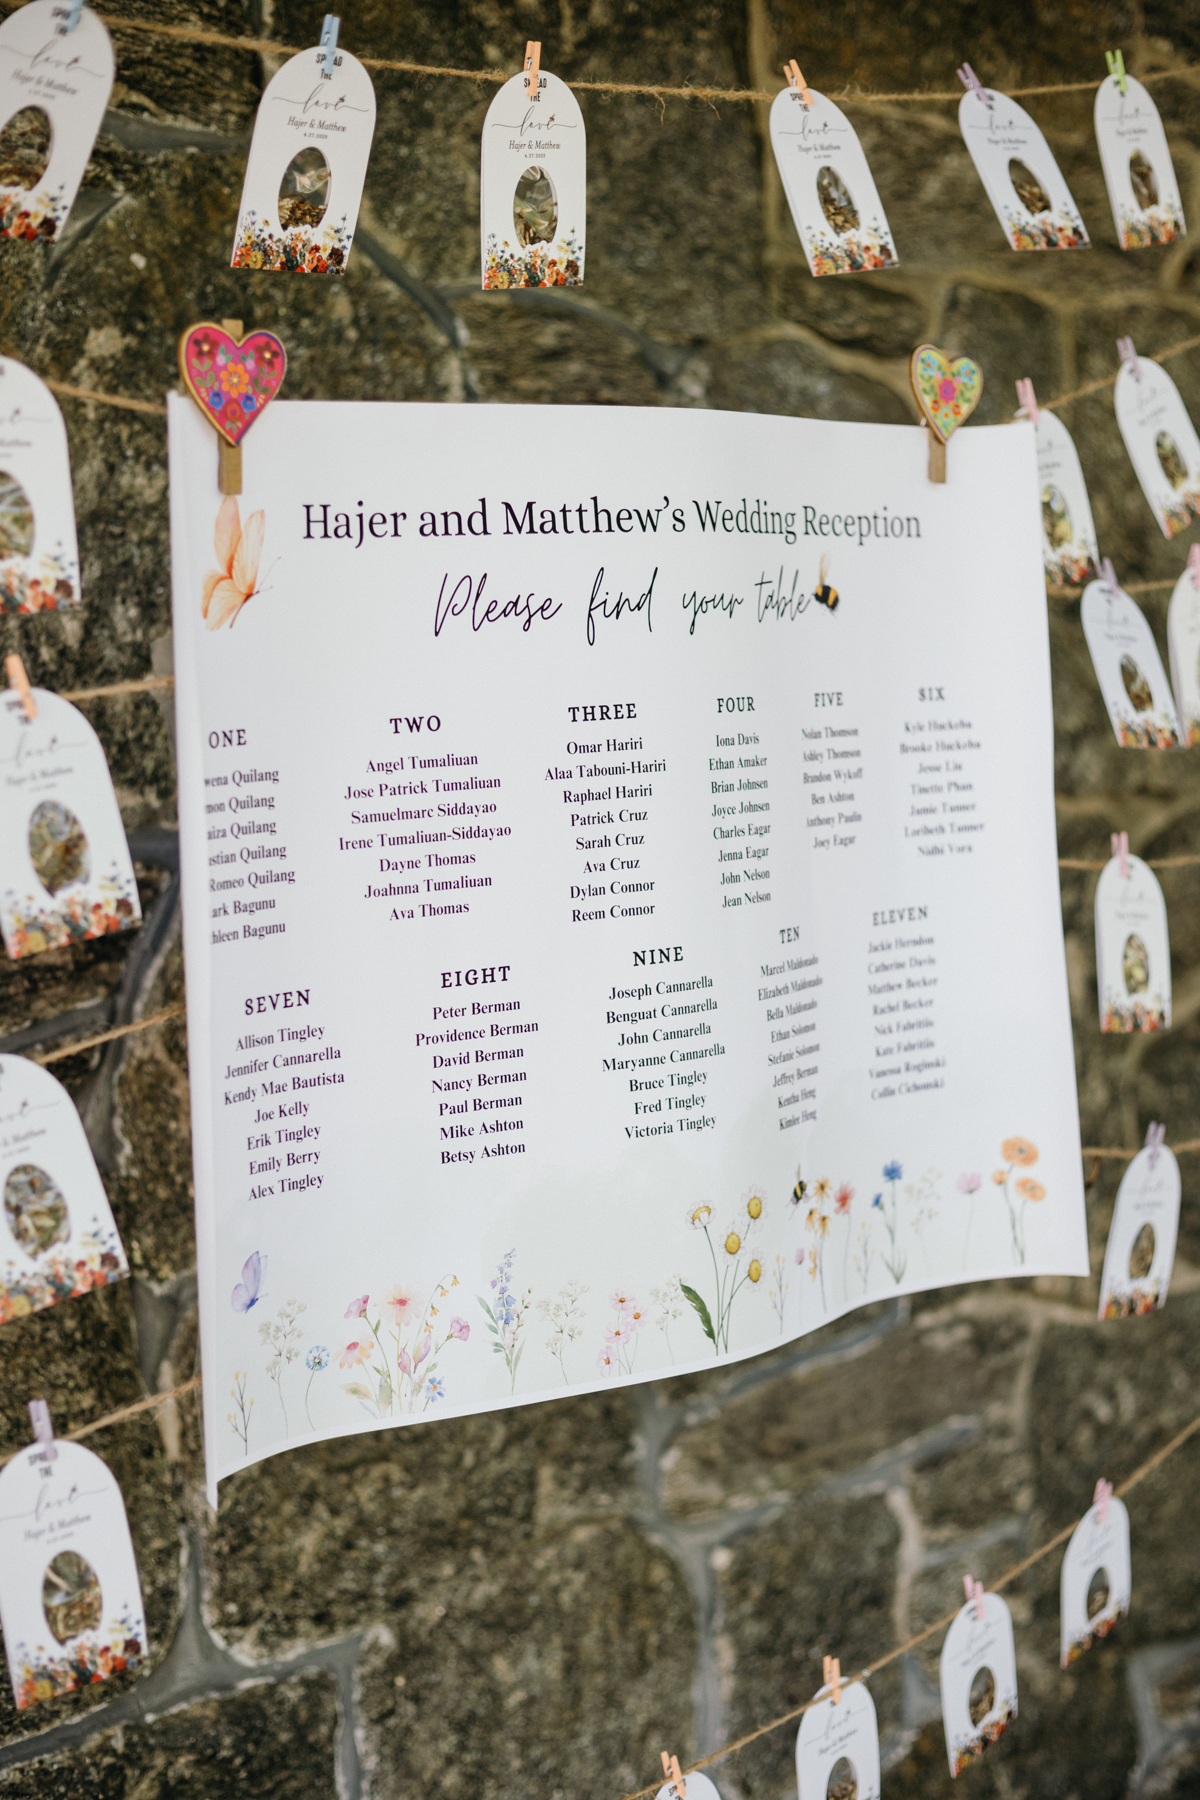 SPREAD
THE
love
Hajer & Matthew
4.27.2025
SPREAD
THE
love
Hajer & Matthew
4.27.2025
Hajer and Matthew's Wedding Reception
Please find your table
ONE
Quilang
Quilang
Quilang
Quilang
Romeo Quilang
Bagunu
Bagunu
TWO
Angel Tumaliuan
Jose Patrick Tumaliuan
Samuelmarc Siddayao
Irene Tumaliuan-Siddayao
Dayne Thomas
Joahnna Tumaliuan
Ava Thomas
THREE
Omar Hariri
Alaa Tabouni-Hariri
Raphael Hariri
Patrick Cruz
Sarah Cruz
Ava Cruz
Dylan Connor
Reem Connor
FOUR
Iona Davis
Ethan Amaker
Brian Johnsen
Joyce Johnsen
Charles Eagar
Jenna Eagar
John Nelson
Jean Nelson
FIVE
Nolan Thomson
Ashley Thomson
Brandon Wykoff
Ben Ashton
Anthony Paulin
Joey Eagar
SIX
Kyle Huckeba
Brooke Huckeba
Jesse Liu
Tinette Phan
Jamie Tanner
Loribeth Tanner
Nidhi Vora
SEVEN
Allison Tingley
Jennifer Cannarella
Kendy Mae Bautista
Joe Kelly
Erik Tingley
Emily Berry
Alex Tingley
EIGHT
Peter Berman
Providence Berman
David Berman
Nancy Berman
Paul Berman
Mike Ashton
Betsy Ashton
NINE
Joseph Cannarella
Benguat Cannarella
John Cannarella
Maryanne Cannarella
Bruce Tingley
Fred Tingley
Victoria Tingley
TEN
Marcel Maldonado
Elizabeth Maldonado
Bella Maldonado
Ethan Solomot
Stefanie Solomot
Jeffrey Berman
Kentha Heng
Kimler Heng
ELEVEN
Jackie Herndon
Catherine Davis
Matthew Becker
Rachel Becker
Nick Fabritiis
Kate Fabritiis
Vanessa Roginski
Collin Cichonski
SPREAD
THE
love
Hajer & Matthew